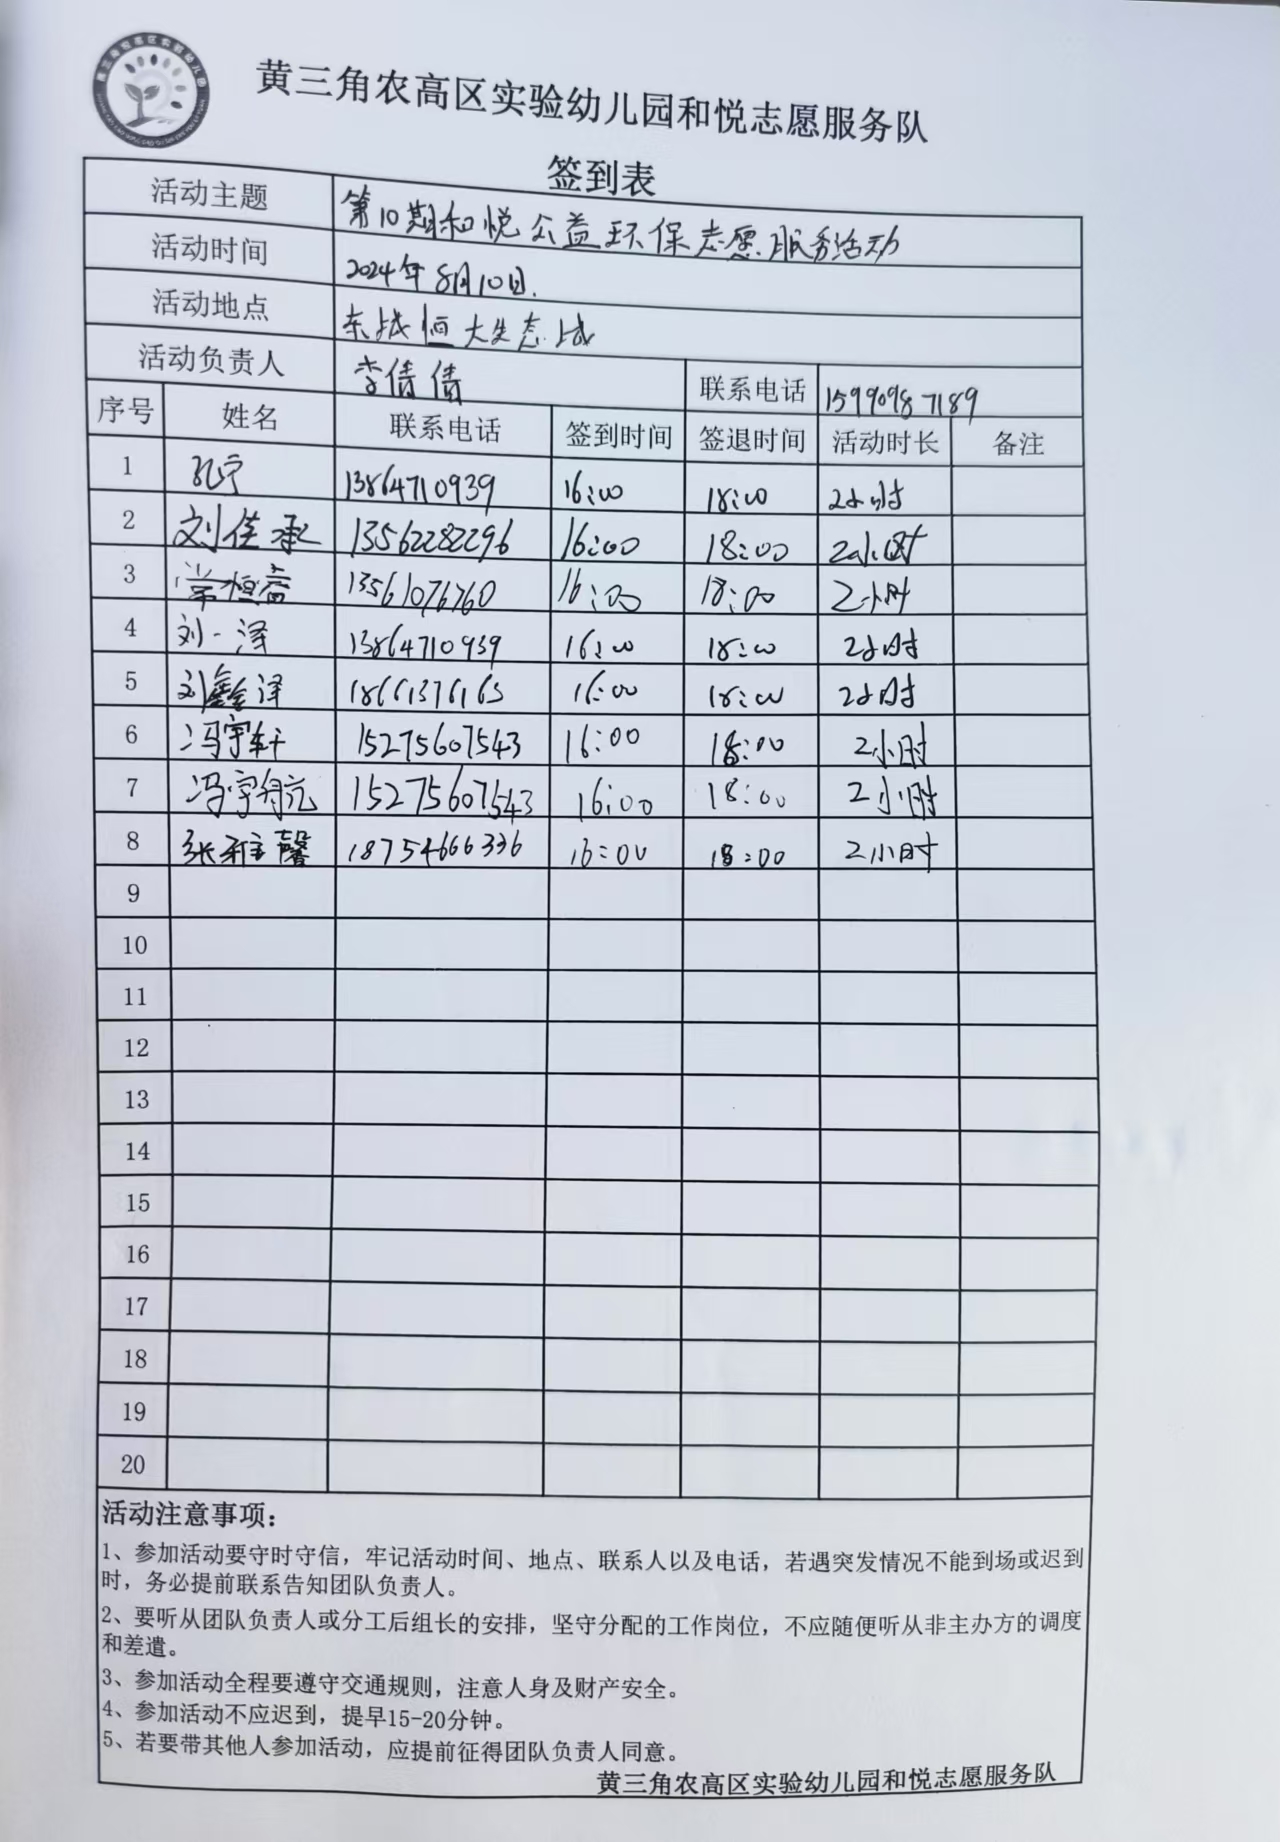 黄三角农高区实验幼儿园和悦志愿服务队
签到表
活动主题 第10期和悦公益环保志愿服务活动
活动时间 2024年8月10日.
活动地点 东城恒大生态城
活动负责人 李倩倩 联系电话 15990987189
序号 姓名 联系电话 签到时间 签退时间 活动时长 备注
1 孔宁 13864710939 16:00 18:00 2小时
2 刘佳承 13562282296 16:00 18:00 2小时
3 13561076760 16:00 18:00 2小时
4 刘一泽 13864710939 16:00 18:00 2小时
5 刘鑫泽 18661376165 16:00 18:00 2小时
6 冯宇轩 15275607543 16:00 18:00 2小时
7 冯宇 15275607543 16:00 18:00 2小时
8 张雅馨 18754666336 16:00 18:00 2小时
9
10
11
12
13
14
15
16
17
18
19
20
活动注意事项：
1、参加活动要守时守信，牢记活动时间、地点、联系人以及电话，若遇突发情况不能到场或迟到
时，务必提前联系告知团队负责人。
2、要听从团队负责人或分工后组长的安排，坚守分配的工作岗位，不应随便听从非主办方的调度
和差遣。
3、参加活动全程要遵守交通规则，注意人身及财产安全。
4、参加活动不应迟到，提早15-20分钟。
5、若要带其他人参加活动，应提前征得团队负责人同意。
黄三角农高区实验幼儿园和悦志愿服务队